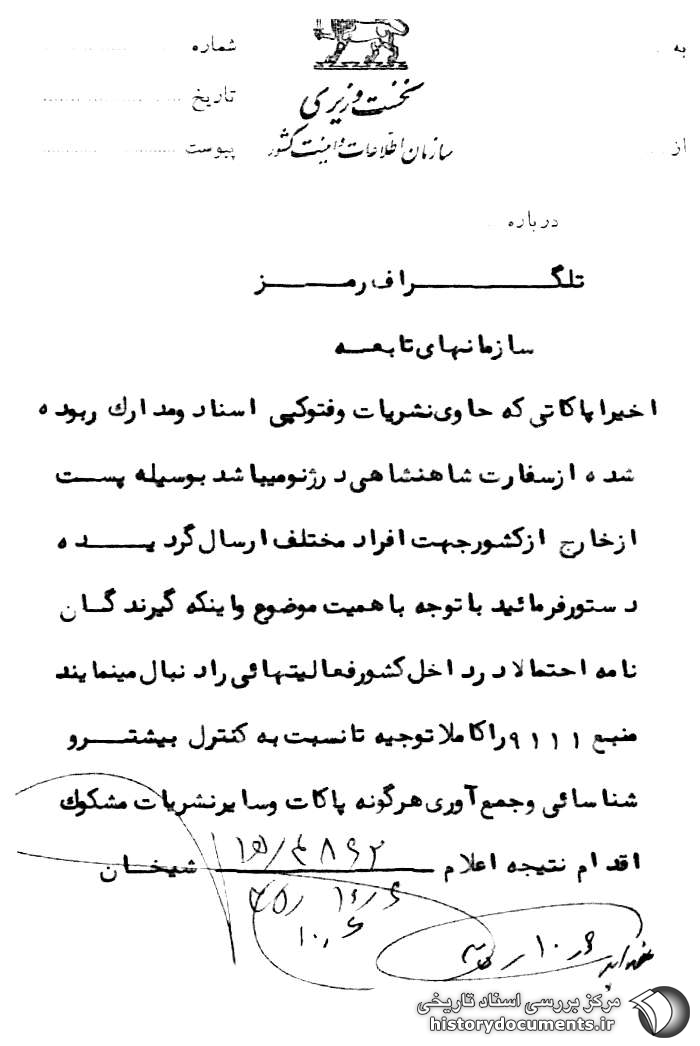 به
شماره
نخست وزیری
تاریخ
سازمان اطلاعات و امنیت کشور
از
پیوست
درباره
تلگراف رمز
سازمانهای تابعه
اخیرا پاکاتی که حاوی نشریات وفتوکپی اسناد ومدارك ربوده
شده ازسفارت شاهنشاهی درژنومیباشد بوسیله پست
ازخارج ازکشورجهت افراد مختلف ارسال گردیده
دستورفرمائید باتوجه باهمیت موضوع واینکه گیرندگان
نامه احتمالا درداخل کشورفعالیتهائی رادنبال مینمایند
منبع ۹۱۱۱ راکاملا توجیه تانسبت به کنترل بیشترو
شناسائی وجمع آوری هرگونه پاکات وسایرنشریات مشکوك
اقدام نتیجه اعلام شیخان
مرکز بررسی اسناد تاریخی
historydocuments.ir